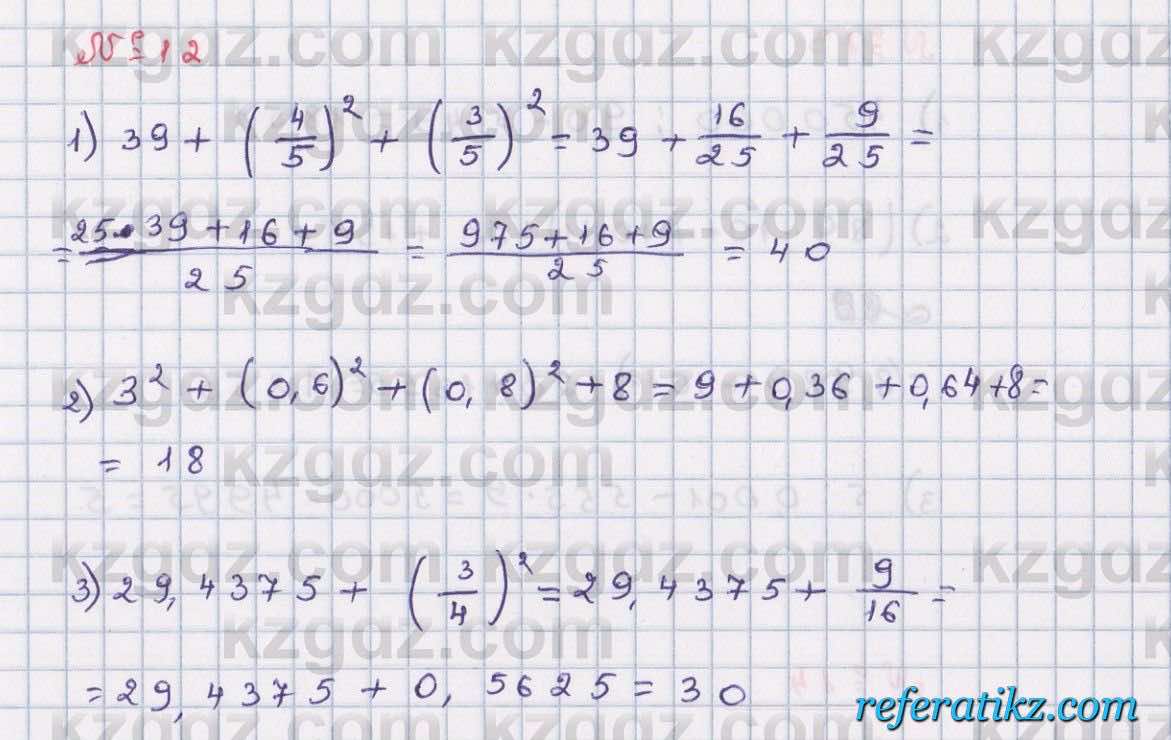 №12
1) 39 + (4/5)² + (3/5)² = 39 + 16/25 + 9/25 =
= 25·39+16+9/25 = 975+16+9/25 = 40
2) 3² + (0,6)² + (0,8)² + 8 = 9 + 0,36 + 0,64 + 8 =
= 18
3) 29,4375 + (3/4)² = 29,4375 + 9/16 =
= 29,4375 + 0,5625 = 30
kzgdz.com
referatikz.com